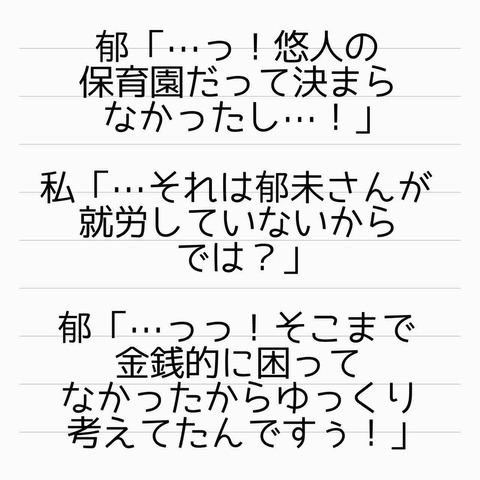 郁「…っ！悠人の
保育園だって決まら
なかったし…！」
私「…それは郁未さんが
就労していないから
では？」
郁「…っっ！そこまで
金銭的に困って
なかったからゆっくり
考えてたんですぅ！」